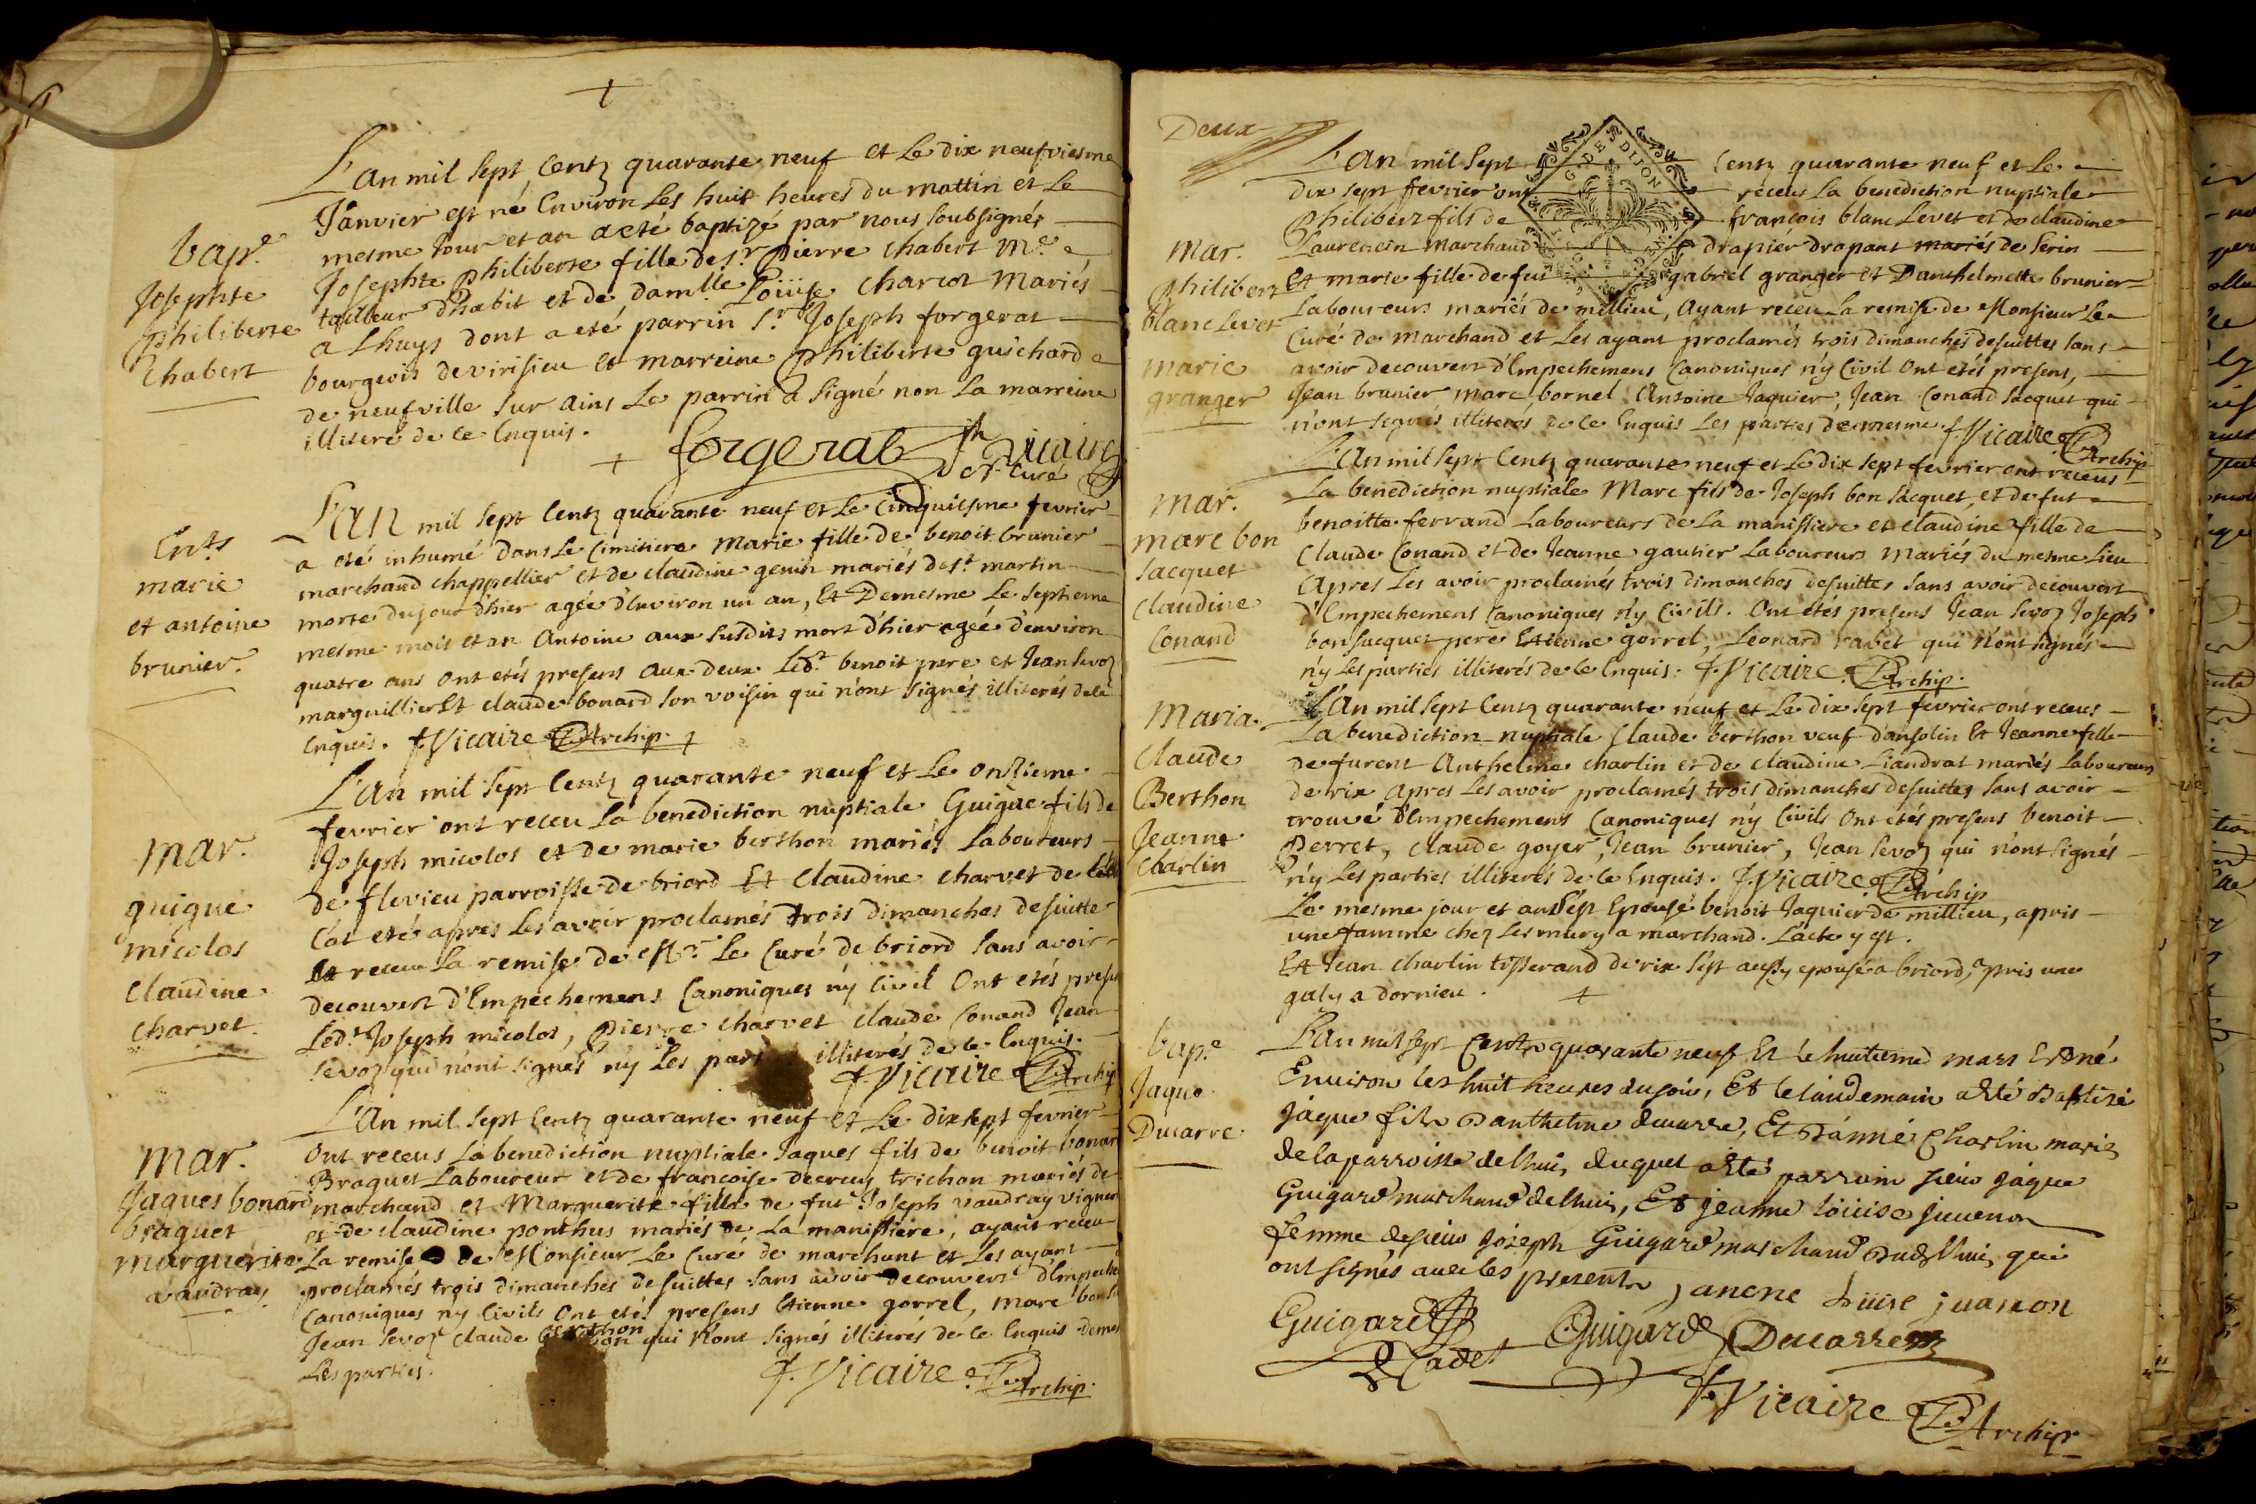 L'an mil sept centz quarante neuf et le dix neufviesme
Janvier est né environ les huit heures du mattin et le
mesme jour et an a eté baptizé par nous soubsignés
Josephte philiberte fille de sr. pierre chabert me.
tailleur d'habit et de damlle. Loüise chariot mariés
a Lhuys dont a eté parrin sr. Joseph forgerat
bourgeois de virisieu et marreine philiberte guichard
de neufville sur ains Le parrin a signé non La marreine
illiteré de ce enquis.
forgerat
Vicaire
et Curé
bap.e
Josephte
philiberte
chabert
L'an mil sept centz quarante neuf et Le cinquiesme fevrier
a eté inhumé dans Le cimitiere marie fille de benoit brunier
marchand chappellier et de claudine genin mariés de st. martin
morte du jour d'hier agée d'environ un an, Et De mesme Le septieme
mesme mois et an Antoine aux susdits mort d'hier agée d'environ
quatre ans ont etés presens aux deux Led.t benoit pere et Jean Sevoz
marguillier Et claude bonard son voisin qui n'ont signés illiterés de ce
enquis. f. Vicaire Archip.
Ent.s
marie
et antoine
brunier.
L'an mil sept centz quarante neuf et Le onzieme
fevrier ont receu La benediction nuptiale Guigue fils de
Joseph micolos et de marie berthon mariés Laboureurs
de flevieu parroisse de briord Et claudine charvet de
eté apres Les avoir proclamés trois dimanches de suitte
Et receu La remise de Mr. Le Curé de briord sans avoir
decouvert d'Empechemens Canoniques ny civil Ont etés
Led.t Joseph micolos, pierre charvet claude Conand Jean
Sevoz qui n'ont signés ny Les illiterés de ce Enquis.
f. Vicaire Archip
mar.
guigue
micolos
claudine
charvet.
L'An mil sept centz quarante neuf et Le dix sept fevrier
ont receus La benediction nuptiale Jaques fils de benoit bonard
Braquet Laboureur et de francoise decruy trichon mariés de
marchand et Marguerite fille de fut Joseph vaudray vigneron
et de claudine ponthus mariés de La manissiere, ayant receu
La remise de Monsieur Le Curé de marchant et Les ayant
proclamés trois dimanches de suittes sans avoir decouvert
Canoniques ny civils Ont etés presens Etienne gorrel, marc
Jean Sevoz claude berthon qui n'ont signés illiterés de ce Enquis
Les parties.
f. Vicaire Archip.
mar.
Jaques bonard
braquet
marguerite
vaudray
Deux
L'An mil sept centz quarante neuf et Le
dix sept fevrier ont receus La benediction nuptiale
philibert fils de francois blanc Levet et de claudine
Laurencin marchand drapier drapant mariés de serin
Et marie fille de fut gabriel granger et D'anthelmette brunier
Laboureurs mariés de millieu, Ayant receu La remise de Monsieur Le
Curé de marchand et Les ayant proclamés trois dimanches de suittes sans
avoir decouvert d'Empechemens Canoniques n'y Civil Ont etés present,
Jean brunier marc bornel Antoine Jaquier, Jean Conand Jacquet qui
n'ont signés illiterés de ce Enquis Les parties de mesme. f. Vicaire Archip
GEN DE DIJON
mar.
philibert
blanc Levet
marie
granger
L'An mil sept centz quarante neuf et Le dix sept fevrier ont receus
La benediction nuptiale Marc fils de Joseph bon Jacquet et de fut
benoitte ferrand Laboureurs de La manissiere et claudine fille de
claude Conand et de Jeanne gautier Laboureurs mariés du mesme Lieu
Apres Les avoir proclamés trois dimanches de suittes sans avoir decouvert
d'Empechemens Canoniques n'y Civils. Ont etés presens Jean Sevoz Joseph
bon Jacquet pere Etienne gorrel, Leonard rabet qui n'ont signés
n'y Les parties illiterés de ce Enquis. f. Vicaire. Archip.
mar.
marc bon
Jacquet
Claudine
Conand
L'An mil sept centz quarante neuf et Le dix sept fevrier ont receus
La benediction nuptiale Claude berthon veuf d'ansolin Et Jeanne fille
de furent Anthelme charlin et de claudine Liandrat mariés Laboureurs
de rix Apres Les avoir proclamés trois dimanches de suittes sans avoir
trouvé d'Empechemens Canoniques n'y Civils Ont etés presens benoit
Perret, claude goyer, Jean brunier, Jean Sevoz qui n'ont signés
n'y Les parties illiterés de ce Enquis. f. Vicaire. Archip
Maria.
Claude
Berthon
Jeanne
Charlin
Le mesme jour et an s'est Epousé benoit Jaquier de millieu, a pris
une famme chez Les mury a marchand. L'acte y est.
Et Jean charlin tisserand de rix s'est aussy epousé a briord, a pris une
galy a dornieu.
L'an mil sept centz quarante neuf Et le huitieme mars Est né
Environ les huit heures du soir, Et le laudemain a été Baptizé
Jaque fils D'anthelme ducarre, Et D'anne Charlin mariés
de la parroisse de lhuis duquel a été parrain sieur Jaque
Guigard marchand de lhuis, Et jeanne loüise juvenon
femme de sieur Joseph Guigard marchand dud. lhuis qui
ont signés avec les presents janene luise juanon
Guigard
Cadet Guigard Ducarre
f. Vicaire Archip
bap.e
Jaque
Ducarre